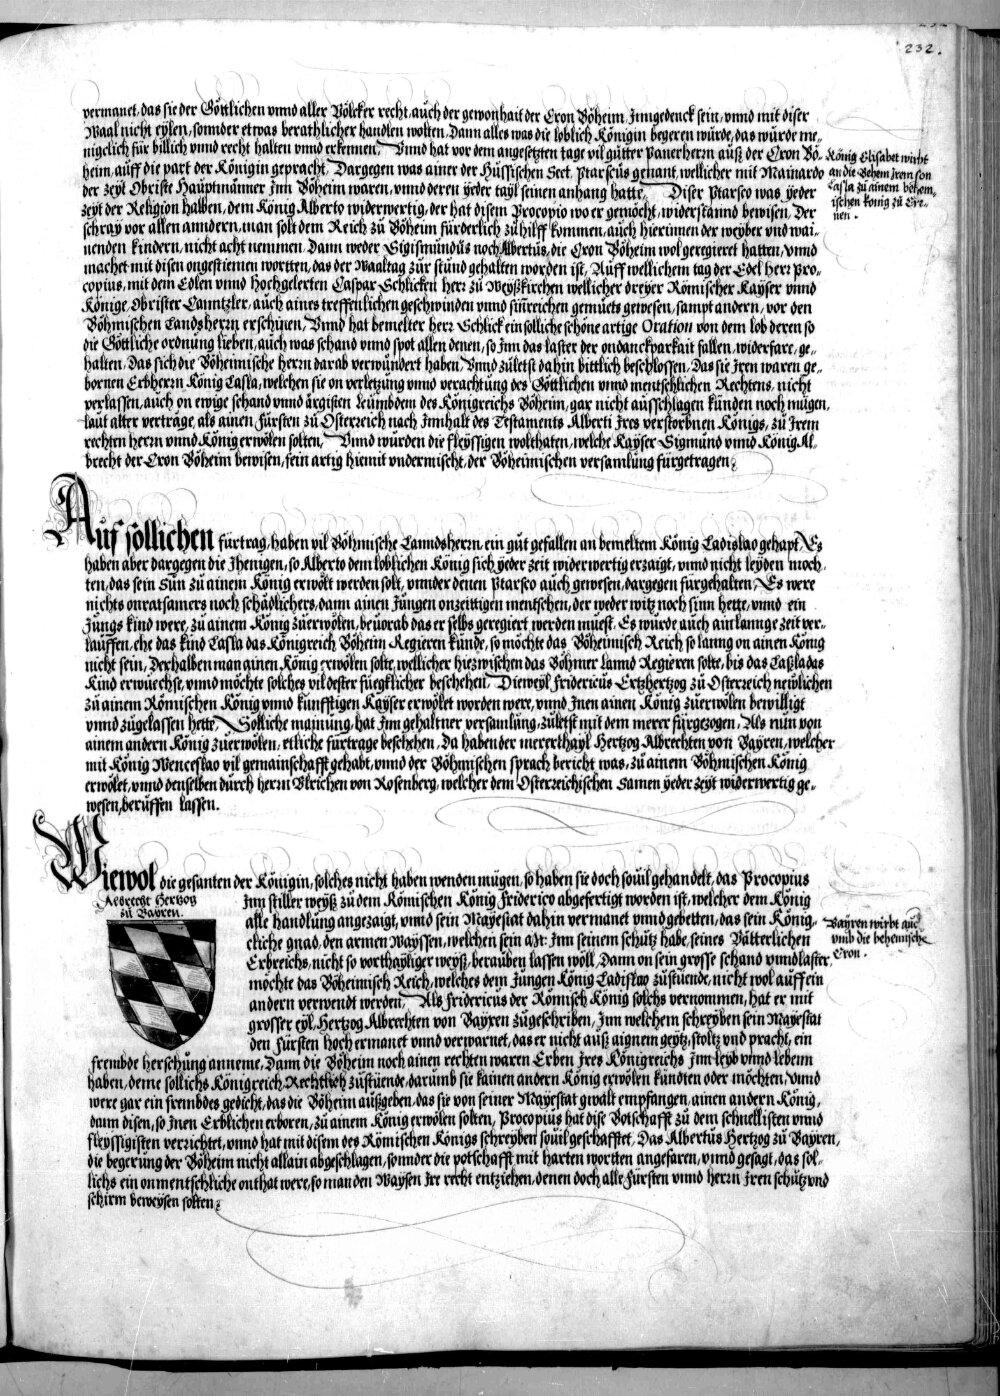 232.
vermanet, das sie der Göttlichen vnnd aller Völcker recht, auch der gewonhait der Cron Böheim Inngedenck sein, vnnd mit diser
Waal nicht eylen, sonnder etwas berathlicher handlen wolten, Dann alles was die loblich Königin begeren würde, das würde me-
nigclich für billich vnnd recht halten vnnd erkennen, Vnnd hat vor dem angesetzten tage vil gütter Panerherrn auß der Cron Bö-
heim, auff die part der Königin gepracht, Dargegen was ainer der Hussischen Sect, Ptarscus genant, wellicher mit Mainardo
der zeyt Obriste Hauptmänner Inn Böheim waren, vnnd deren yeder tayl seinen anhang hatte, Diser Ptarsco was yeder
zeyt der Religion halben, dem König Alberto widerwertig, der hat disem Procopio wo er gemöcht, widerstannd bewisen, Der
schray vor allen anndern, man solt dem Reich zu Böheim fürderlich zu hilff kommen, auch hierinnen der weyber vnd wai-
nenden kindern, nicht acht nemmen, Dann weder Sigismundus noch Albertus, die Cron Böheim wol geregieret hatten, vnnd
machet mit disen ongestiemen wortten, das der Waaltag zur stund gehalten worden ist, Auff wellichem tag der Edel herr Pro-
copius, mit dem Edlen vnnd Hochgelerten Caspar Schlicken herr zu Weyßkirchen wellicher dreyer Römischer Kayser vnnd
Könige, Obrister Canntzler, auch aines treffenlichen geschwinden vnnd sinreichen gemüets gewesen, sampt andern, vor den
Böhmischen Landsherrn erschinen, Vnnd hat bemelter herr Schlick ein solliche schöne artige Oration von dem lob deren so
die Göttliche ordnung lieben, auch was schand vnnd spot allen denen, so Inn das laster der ondanckparkait fallen, widerfare, ge-
halten, Das sich die Böheimische herrn darab verwundert haben, Vnnd zuletst dahin bittlich beschlossen, Das sie Iren waren ge-
bornen Erbherrn König Lasla, welchen sie on verletzung vnnd verachtung des Göttlichen vnnd mentschlichen Rechtens, nicht
verlassen, auch on ewige schand vnnd ärgisten leümbdem des Königreichs Böheim, gar nicht ausschlagen künden noch mügen,
laut alter verträge, als ainen Fürsten zu Osterreich nach Innhalt des Testaments Alberti Ires verstorbnen Königs, zu Irem
rechten herrn vnnd König erwölen solten, Vnnd würden die fleyssigen wolthaten, welche Kayser Sigmund vnnd König Al-
brecht der Cron Böheim bewisen, fein artig hiemit vndermischt, der Böheimischen versamlung fürgetragen,
König Elisabet wirbt
an die Behem Irem son
Lasla zu ainem böhem-
ischen konig zu
Auf söllichen fürtrag, haben vil Böhmische Lanndsherrn, ein gut gefallen an bemeltem König Ladislao gehapt, Es
haben aber dargegen die Jhenigen, so Alberto dem loblichen König sich yeder zeit widerwertig erzaigt, vnnd nicht leyden moch-
ten, das sein Sun zu ainem König erwölt werden solt, vnnder denen Ptarsco auch gewesen, dargegen fürgehalten, Es were
nichts onratsamers noch schädlichers, dann ainen Jungen onzeittigen mentschen, der weder witz noch sinn hette, vnnd ein
Jungs kind were, zu ainem König zuerwölen, beuorab das er selbs geregiert werden müest, Es wurde auch ain lannge zeit ver-
lauffen, ehe das kind Lasla das Königreich Böheim Regieren künde, so möchte das Böheimisch Reich so lanng on ainen König
nicht sein, Derhalben man ainen König erwölen solte, wellicher hiezwischen das Böhmer Lannd Regieren solte, bis das Laßla das
Kind erwüechse, vnnd möchte solches vil dester füegklicher beschehen, Dieweyl Fridericus Ertzhertzog zu Osterreich newlichen
zu ainem Römischen König vnnd kunfftigen Kayser erwölet worden were, vnnd Inen ainen König zuerwölen bewilligt
vnnd zugelassen hette, Sölliche mainung, hat Inn gehaltner versamlung, zuletst mit dem merer fürgezogen, Als nun von
ainem andern König zuerwölen, etliche fürtrage beschehen, Da haben der mererthayl Hertzog Albrechten von Bayren, welcher
mit König Wenceslao vil gemainschafft gehabt, vnnd der Böhmischen sprach bericht was, zu ainem Böhmischen König
erwölet, vnnd denselben durch herrn Vlrichen von Rosenberg, welcher dem Osterreichischen Samen yeder zeyt widerwertig ge-
wesen, beruffen lassen.
Wiewol die gesanten der Königin, solches nicht haben wenden mügen, so haben sie doch souil gehandelt, das Procopius
Inn stiller weyß zu dem Römischen König Friderico abgefertigt worden ist, welcher dem König
alle handlung angezaigt, vnnd sein Mayestat dahin vermanet vnnd gebetten, das sein König-
cliche gnad, den armen Wayssen, welchen sein Mt: Inn seinem schutz habe, seines Vätterlichen
Erbreichs, nicht so vorthayliger weyß, berauben lassen wöll, Dann on sein grosse schand vnnd laster,
möchte das Böheimisch Reich, welches dem Jungen König Ladislao zustüende, nicht wol auff ein
andern verwendt werden, Als Fridericus der Römisch König solchs vernommen, hat er mit
grosser eyl, Hertzog Albrechten von Bayren zugeschriben, Inn welchem schreyben sein Mayestat
den Fürsten hoch ermanet vnnd verwarnet, das er nicht auß aignem geytz, stoltz vnd pracht, ein
frembde herschung anneme, Dann die Böheim noch ainen rechten waren Erben Ires Königreichs Inn leyb vnnd lebenn
haben, deme sollichs Königreich Rechtlich zustüende, darumb sie kainen andern König erwölen kündten oder möchten, Vnnd
were gar ein frembdes gedicht, das die Böheim außgeben, das sie von seiner Mayestat gwalt empfangen, ainen andern König,
dann disen, so Inen Erblichen erboren, zu ainem König erwölen solten, Procopius hat dise Botschafft zu dem schnellisten vnnd
fleyssigisten verrichtet, vnnd hat mit disem des Römischen Königs schreyben souil geschafftet, Das Albertus Hertzog zu Bayren,
die begerung der Böheim nicht allain abgeschlagen, sonnder die potschafft mit harten wortten angefaren, vnnd gesagt, das sol-
lichs ein onmentschliche onthat were, so man den Waysen Ire recht entziehen, denen doch alle Fürsten vnnd herrn Iren schutz vnd
schirm beweysen solten,
Albrecht Hertzog
zu Bayren.
Bayren wirbt auch
vmb die behemische
Cron.